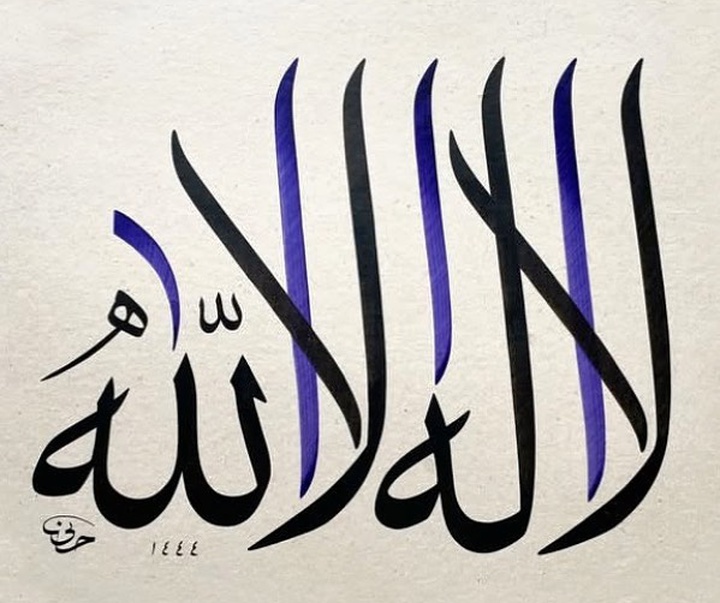 لا اله الا اللّٰهُ
١٤٤٤